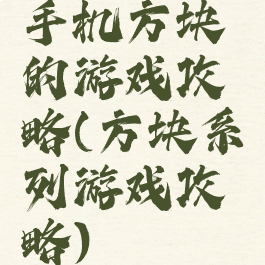 手机方块
的游戏攻
略(方块系
列游戏攻
略)